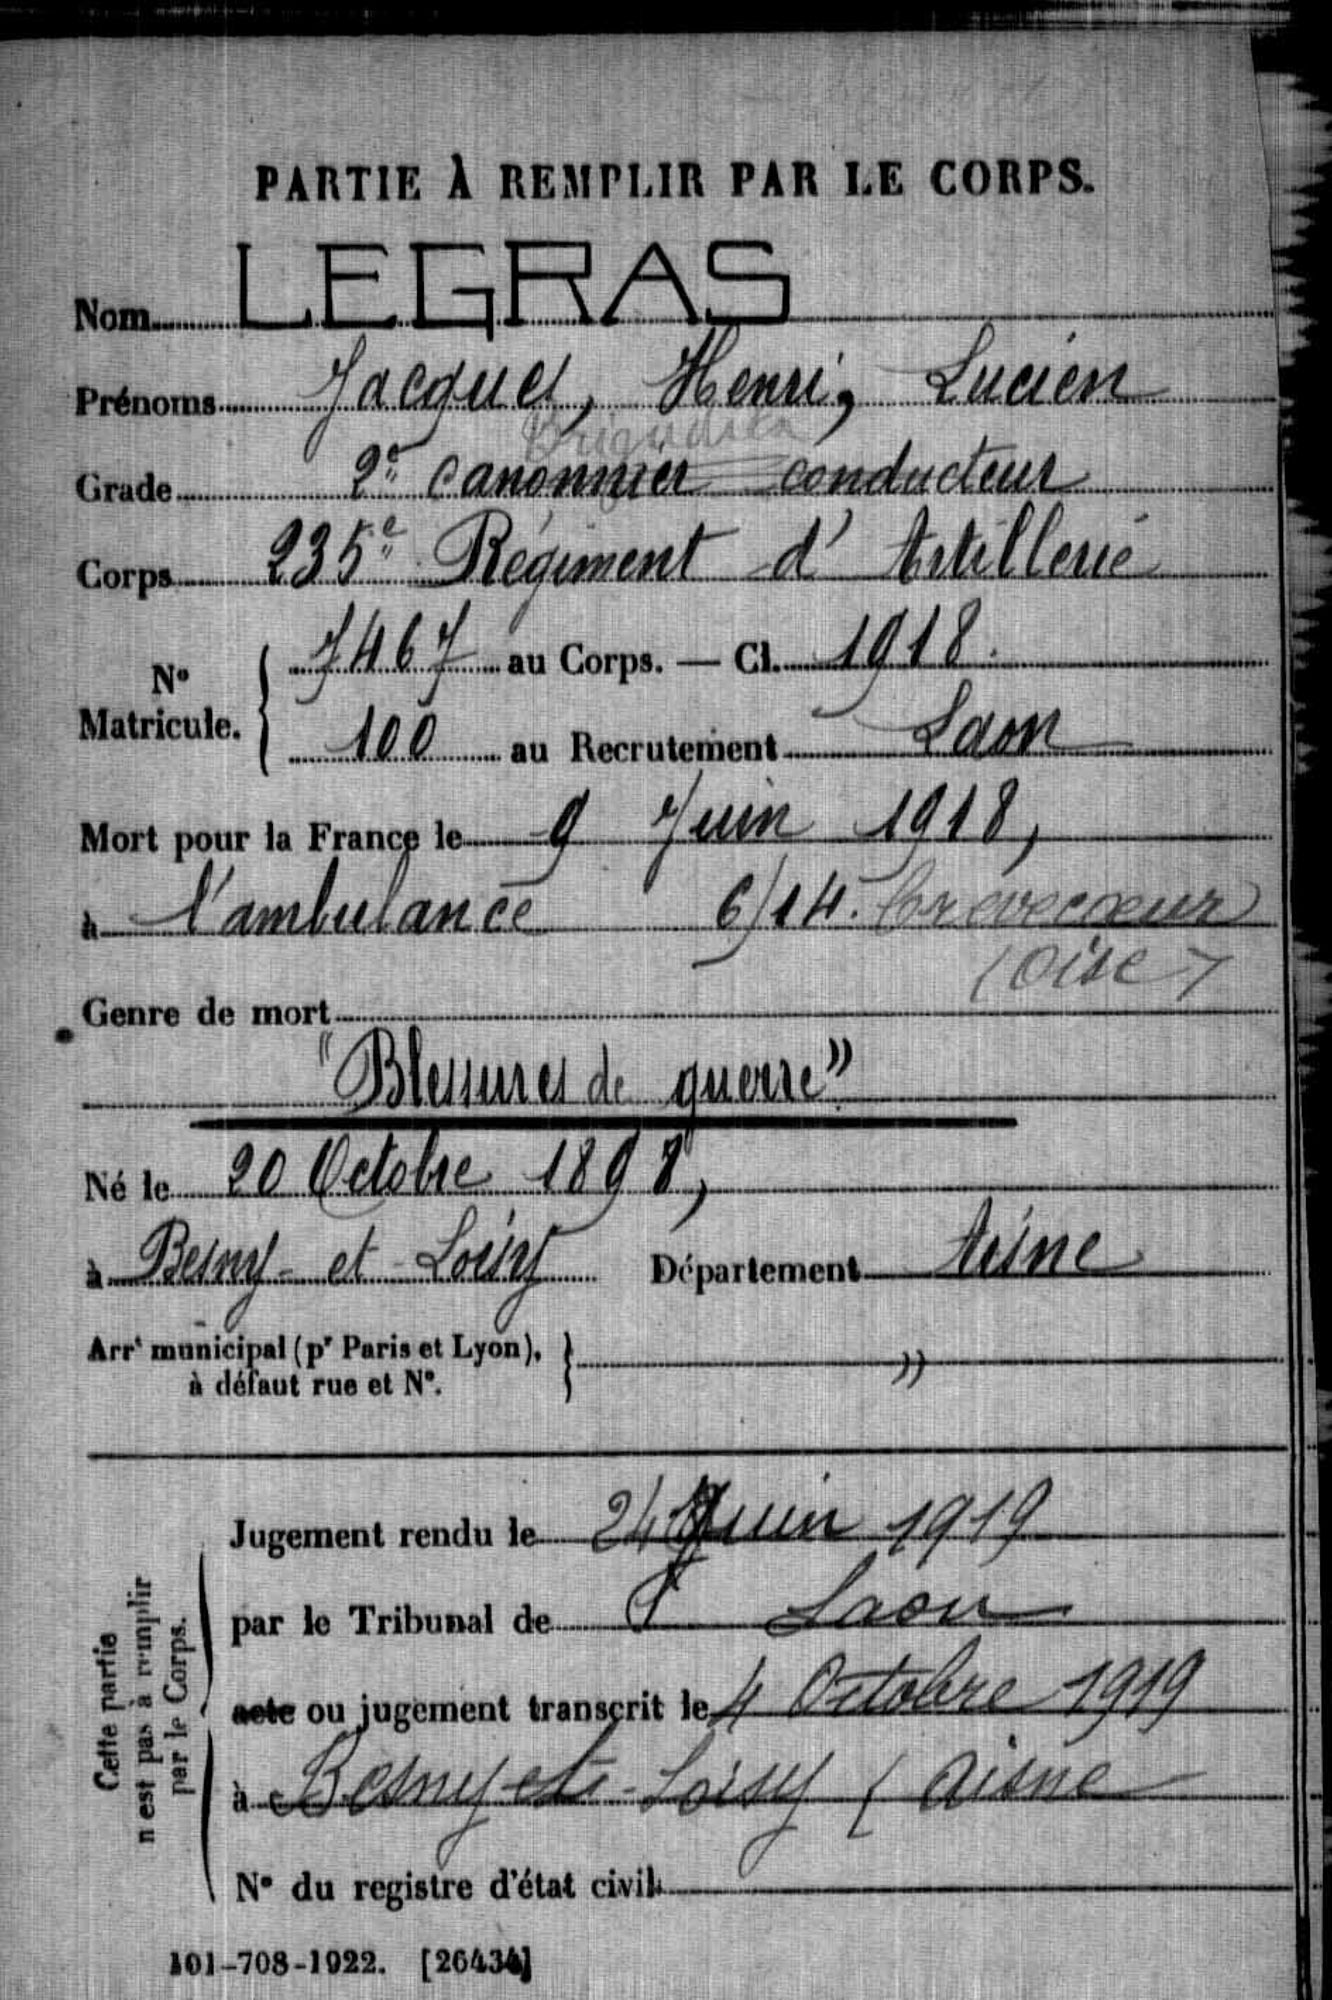 PARTIE À REMPLIR PAR LE CORPS.
Nom LEGRAS
Prénoms Jacques, Henri, Lucien
Brigadier
Grade 2e canonnier conducteur
Corps 235e Régiment d'Artillerie
No Matricule. { 7467 au Corps. — Cl. 1918.
100 au Recrutement Laon
Mort pour la France le 9 Juin 1918,
à l'ambulance 6/14. Crevecoeur
(Oise)
Genre de mort
"Blessures de guerre"
Né le 20 Octobre 1898,
à Besny-et-Loisy Département Aisne
Arrt municipal (pr Paris et Lyon), } "
à défaut rue et No.
Cette partie
n'est pas à remplir
par le Corps.
Jugement rendu le 24 Juin 1919
par le Tribunal de Laon
acte ou jugement transcrit le 4 Octobre 1919
à Besny-et-Loisy (Aisne
No du registre d'état civil
101-708-1922. [26434]